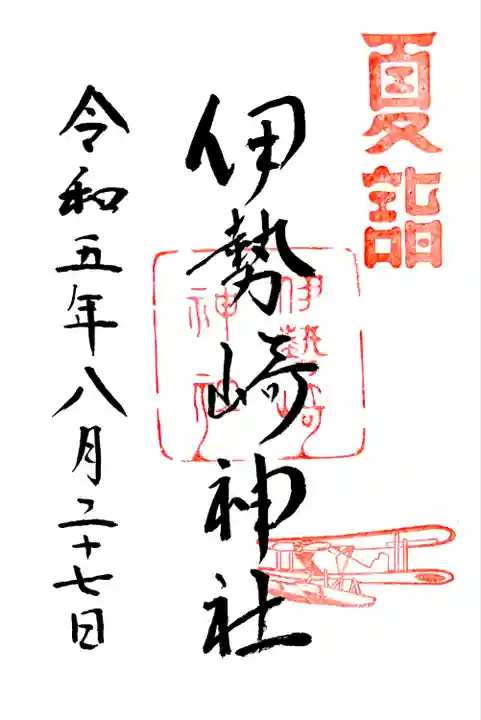 夏詣
伊勢崎神社
伊勢崎
神社
令和五年八月二十七日